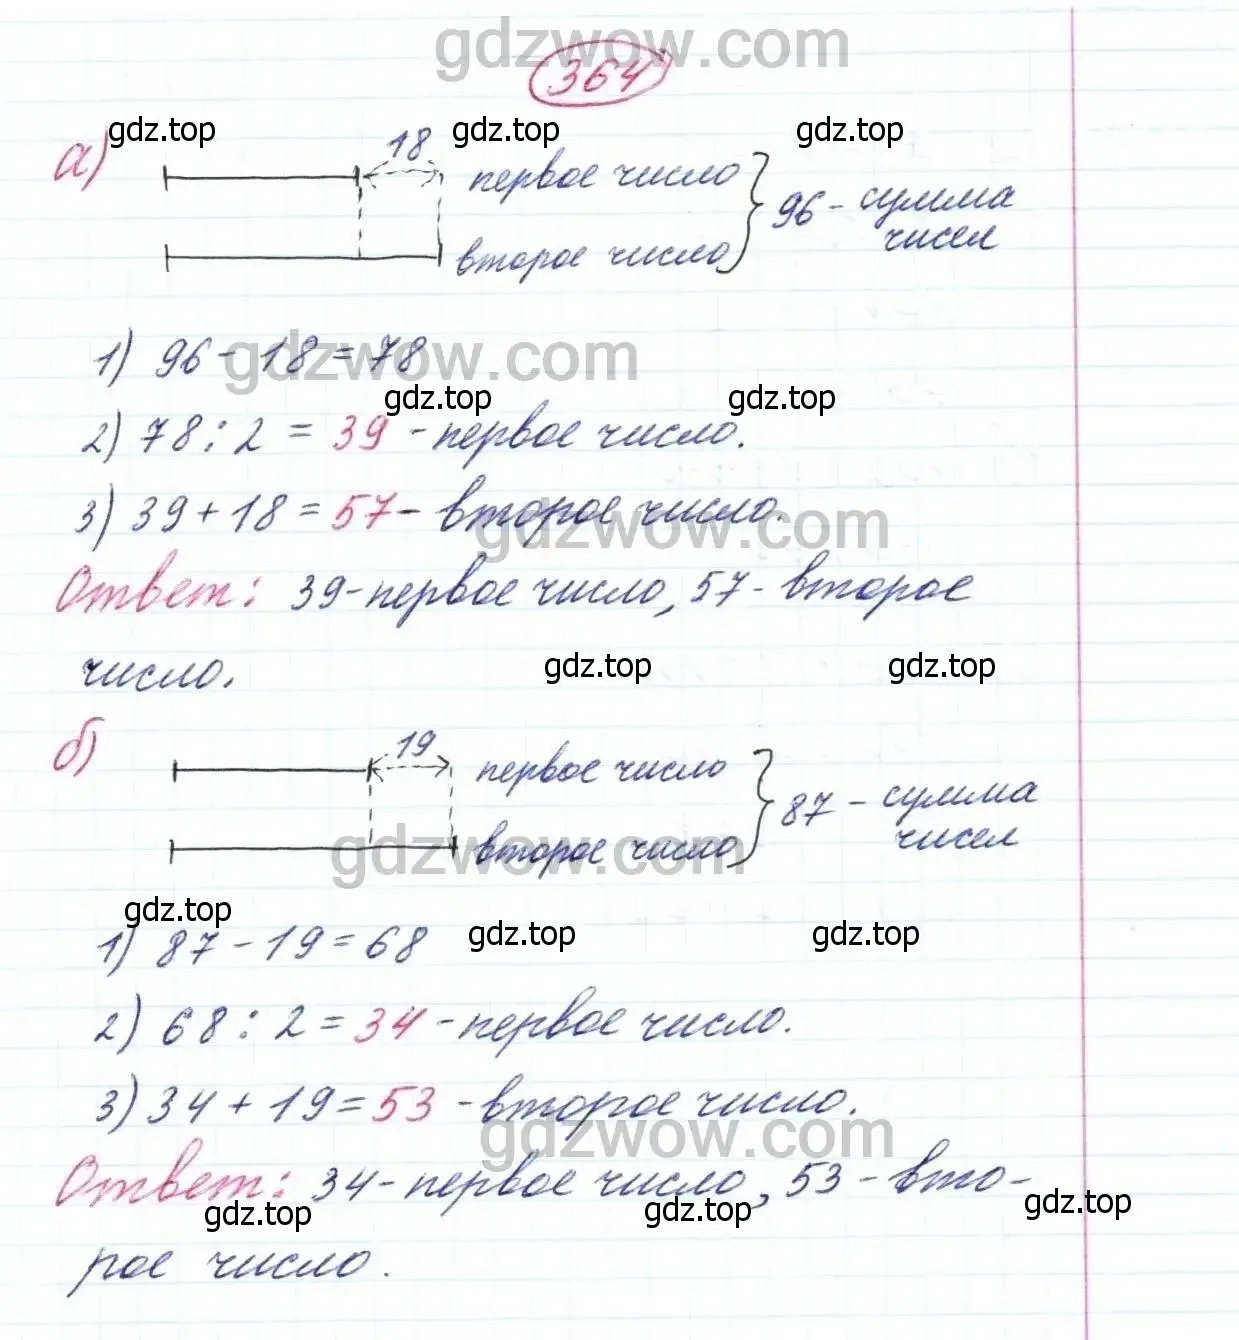 gdzwow.com
364
gdz.top gdz.top gdz.top
а) 18 первое число
96 - сумма чисел
второе число
gdzwow.com
1) 96 - 18 = 78
gdz.top gdz.top
2) 78 : 2 = 39 - первое число.
3) 39 + 18 = 57 - второе число.
gdzwow.com
Ответ: 39 - первое число, 57 - второе
число.
gdz.top gdz.top
б) 19 первое число
87 - сумма чисел
второе число
gdzwow.com
gdz.top gdz.top gdz.top
1) 87 - 19 = 68
2) 68 : 2 = 34 - первое число.
3) 34 + 19 = 53 - второе число.
gdzwow.com
Ответ: 34 - первое число, 53 - вто-
gdz.top gdz.top gdz.top
рое число.